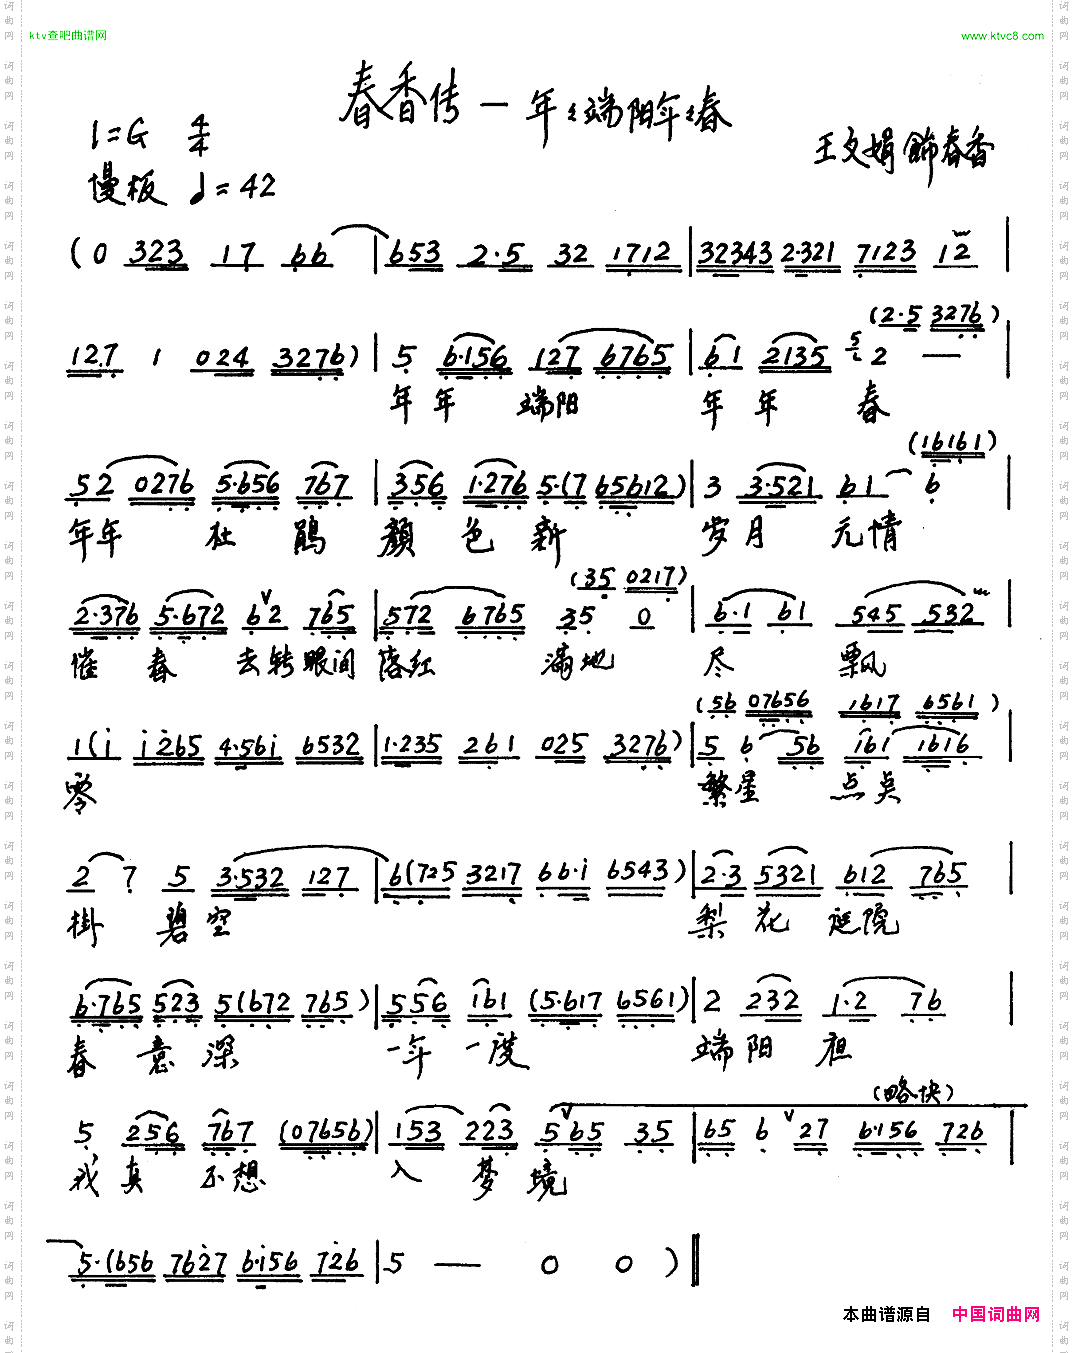 ktv查吧曲谱网 www.ktvc8.com
春香传一年々端阳年々春
1=G 4/4
王文娟 饰春香
慢板 ♩=42
(0 323 17 66 | 653 2·5 32 1712 | 32343 2·321 7123 12 |
(2·5 3276)
127 1 024 3276) | 5 6·156 127 6765 | 61 2135 2 — |
年年 端阳 年年 春
(16161)
52 0276 5·656 767 | 356 1·276 5·(7 65612) | 3 3·521 61 6 |
年年 杜鹃 颜色新 岁月无情
(35 0217)
2·376 5·672 62 765 | 572 6765 35 0 | 6·1 61 545 532 |
催春去转眼间落红 满地 尽 飘
(56 07656 1617 6561)
1(i i265 4·56i 6532 | 1·235 261 025 3276) | 5 6 56 161 1616 |
零 繁星 点点
2 7 5 3·532 127 | 6(725 3217 66·i 6543) | 2·3 5321 612 765 |
掛 碧空 梨花 庭院
6·765 523 5(672 765) | 556 161 (5·617 6561) | 2 232 1·2 76 |
春意深 一年一度 端阳祖
(略快)
5 256 767 (07656) | 153 223 565 35 | 65 6 27 6·156 726 |
我真 不想 入梦境
5·(656 7627 6·156 726 | 5 — 0 0 )‖
本曲谱源自 中国词曲网